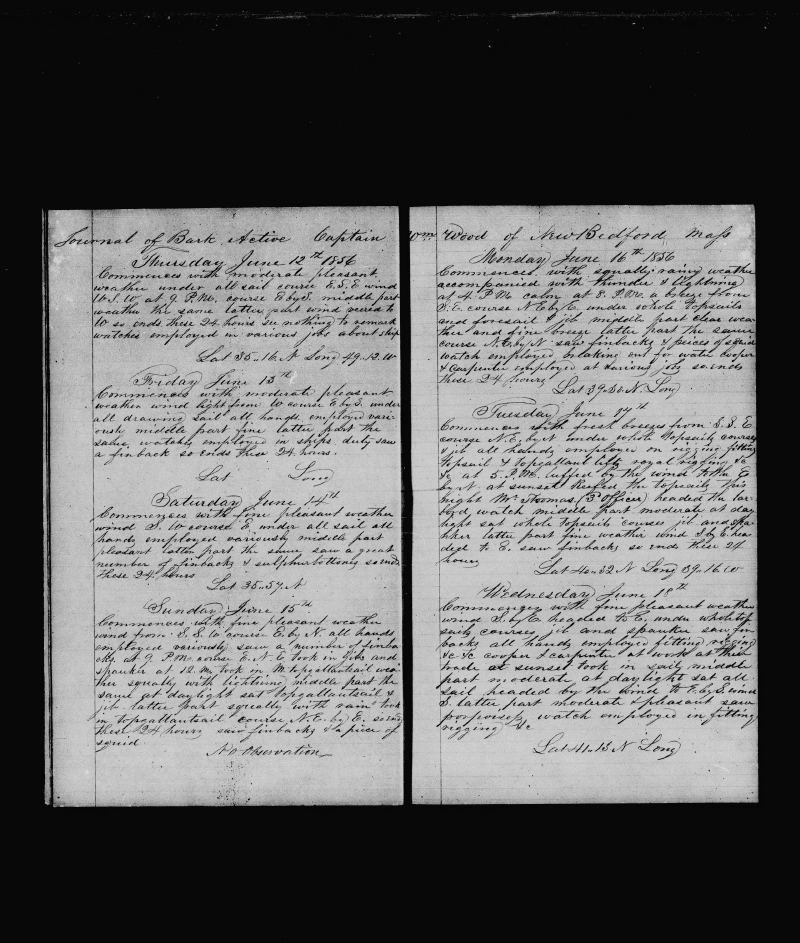 Journal of Bark Active Captain
Thursday June 12th 1856
Commences with moderate pleasant
weather under all sail course E.S.E wind
W.S.W. at 9 P.M. course E by S. middle part
weather the same latter part wind veered to
W so ends these 24 hours see nothing to remark
watches employed in various jobs about ship
Lat 35-16 N Long 49.12 W
Friday June 13th
Commences with moderate pleasant
weather wind light from W course E by S. under
all drawing sail all hands employed vari-
ously middle part fine latter part the
same watches employed in ships duty saw
a finback so ends these 24 hours.
Lat Long
Saturday June 14th
Commences with fine pleasant weather
wind S.W course E. under all sail all
hands employed variously middle part
pleasant latter part the same saw a great
number of finbacks & sulphurbottoms so ends
these 24 hours
Lat 35-57 N
Sunday June 15th
Commences with fine pleasant weather
wind from S.S.W course E. by N. all hands
employed variously saw a number of finba
cks. at 9 P.M. course E.N.E took in jibs and
spanker at 12. M. took in M topgallantsail wea-
ther squally with lightning middle part the
same at daylight sat topgallantsail &
jib latter part squally with rain took
in topgallantsail course N.E. by E. so ends
these 24 hours saw finbacks & a piece of
squid
No Observation
Wm Wood of New Bedford Mass
Monday June 16th 1856
Commences with squally rainy weather
accompanied with thunder & lightning
at 4. P.M. calm at 8. P.M. a breeze from
S.E. course N.E by E under whole topsails
and foresail & jib middle part clear wea
ther and fine breeze latter part the same
course N.E. by N saw finbacks & pieces of squid
watch employed breaking out for water cooper
& carpenter employed at various jobs so ends
these 24 hours
Lat 39-20 N. Long
Tuesday June 17th
Commences with fresh breezes from S.S.E
course N.E. by N under whole topsails courses
& jib all hands employed on rigging fitting
topsail & topgallant lifts royal rigging &c
&c at 5. P.M. luffed by the wind to the E
by N. at sunset Reefed the topsails this
night Mr Thomas (3d Officer) headed the lar-
bord watch middle part moderate at day
light sat whole topsails courses jib and spa-
nker latter part fine weather wind S by E. hea-
ded to E. saw finbacks so ends these 24
hours
Lat 40-32 N Long 39.16 W
Wednesday June 18th
Commences with fine pleasant weather
wind S. by E headed to E. under whole top
sails courses jib and spanker saw fin
backs all hands employed fitting rigging
&c &c cooper & carpenter at work at their
trade at sunset took in sail middle
part moderate at daylight sat all
sail headed by the wind to E. by S. wind
S. latter part moderate & pleasant saw
porpoises watch employed in fitting
rigging &c
Lat 41-13 N Long